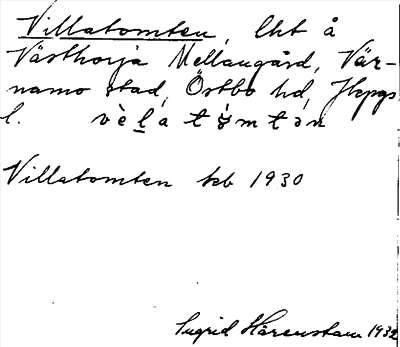 Villatomten, lht å
Västhorja Mellangård, Vär-
namo stad, Östbo hd, Jkpgs
l. vèl̲a tómtən
Villatomten kb 1930
Ingrid Härenstam 1932